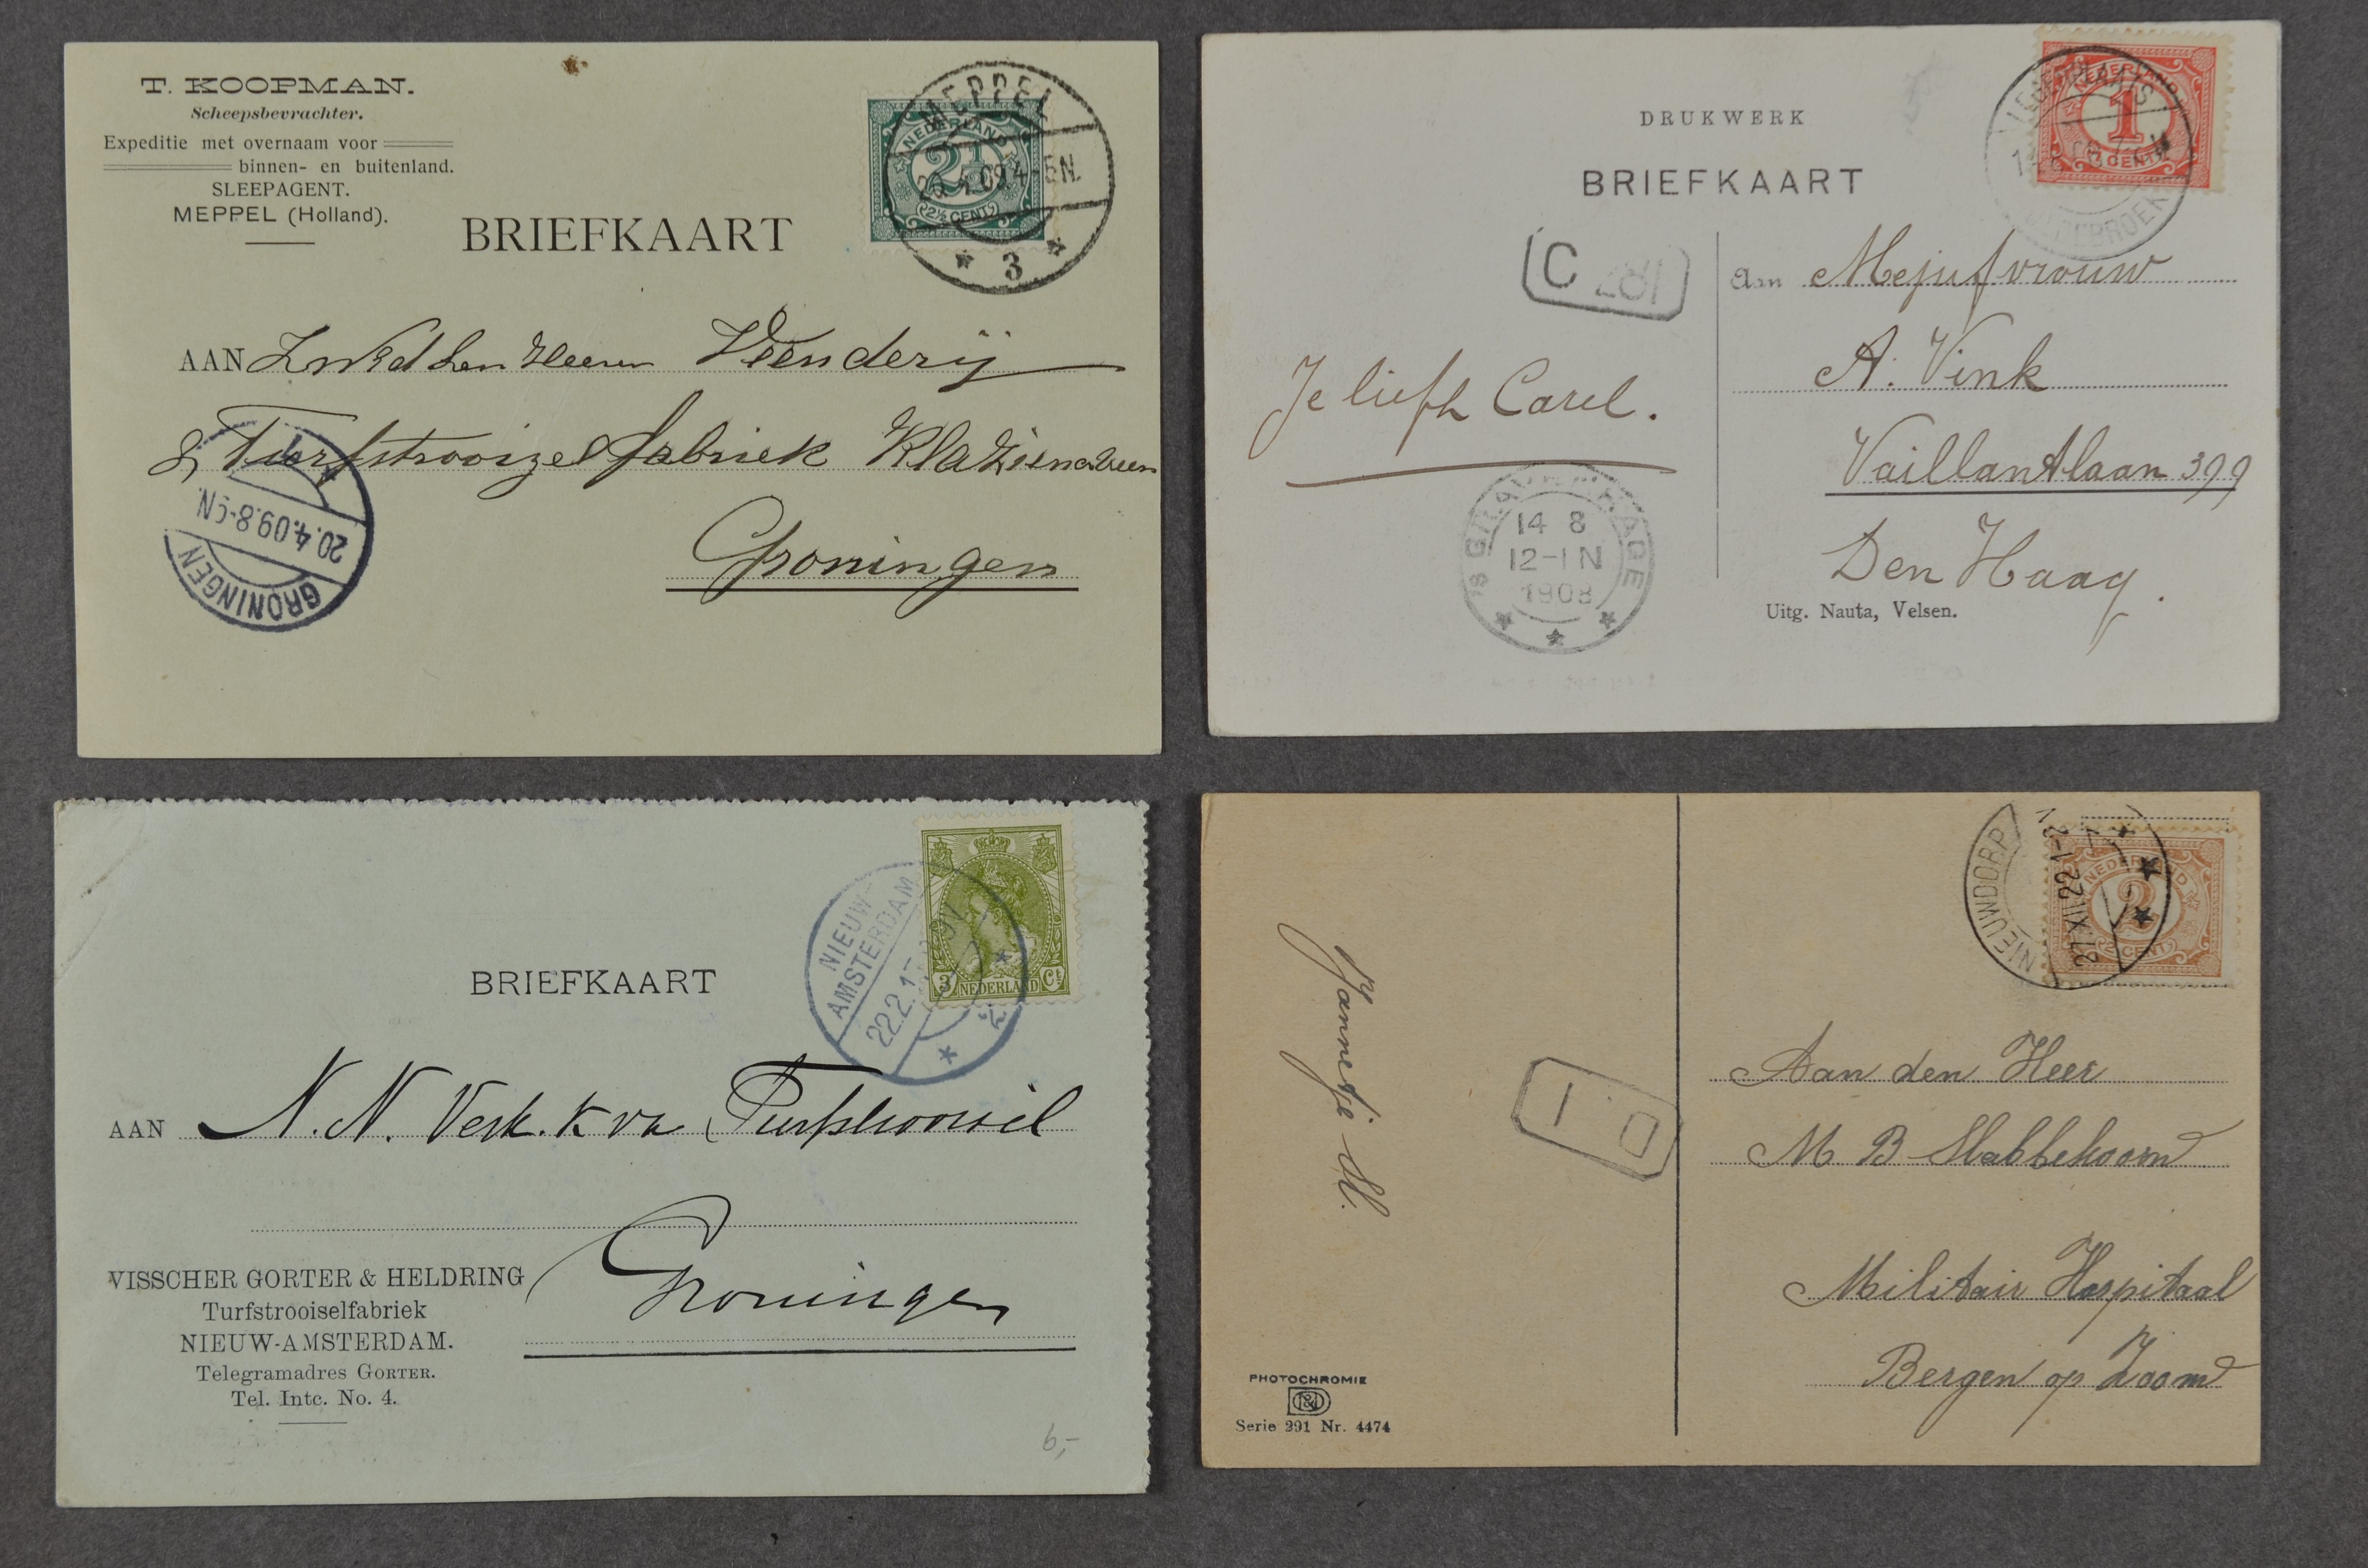 T. KOOPMAN.
Scheepsbevrachter.
Expeditie met overnaam voor
binnen- en buitenland.
SLEEPAGENT.
MEPPEL (Holland).
BRIEFKAART
NEDERLAND
2½
2½ CENT
MEPPEL
4-5N.
3
AAN den Heeren Veenderij
& Turfstrooisel fabriek Klazienaveen
Groningen
1
20.4.09.8-9N.
GRONINGEN
DRUKWERK
BRIEFKAART
NEDERLAND
1
CENT
C 281
Aan Mejufvrouw
A. Vink
Vaillantlaan 399
Den Haag.
Je liefh Carel.
'S GRAVENHAGE
14 8
12-1N
1908
Uitg. Nauta, Velsen.
BRIEFKAART
3 NEDERLAND Ct
NIEUW-
AMSTERDAM
22.2.1
AAN N.N. Verk. K v. Turfstrooisel
Groningen
VISSCHER GORTER & HELDRING
Turfstrooiselfabriek
NIEUW-AMSTERDAM.
Telegramadres GORTER.
Tel. Intc. No. 4.
6,-
NIEUWDORP
21.XI.22 1-2 N
NEDERLAND
2
CENT
Jannetje Sl.
1 0
Aan den Heer
M B Slabbekoorn
Militair Hospitaal
Bergen op Zoom
PHOTOCHROMIE
Serie 291 Nr. 4474